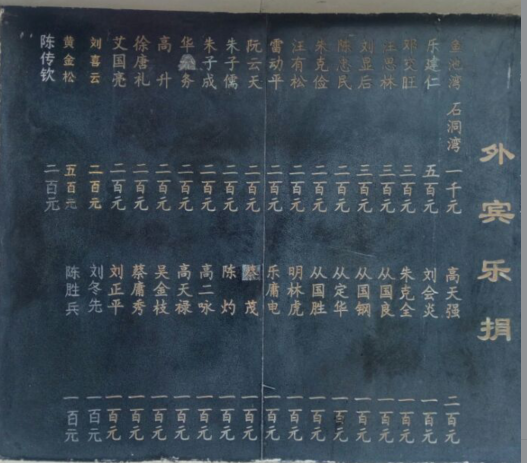 外宾乐捐
鱼池湾 石洞湾 一千元
乐建仁 五百元
邓汉旺 三百元
汪思林 三百元
刘显后 三百元
陈惠民 二百元
朱克俭 二百元
汪有松 二百元
雷动平 二百元
阮云天 二百元
朱子儒 二百元
朱子成 二百元
华鑫务 二百元
高升 二百元
徐唐礼 二百元
艾国亮 二百元
刘喜云 二百元
黄金松 五百元
陈传钦 二百元
高天强 二百元
刘会炎 一百元
朱克全 一百元
从国良 一百元
从国钢 一百元
从定华 一百元
从国胜 一百元
明林虎 一百元
乐庸电 一百元
蔡茂 一百元
陈灼 一百元
高二咏 一百元
高天禄 一百元
吴金枝 一百元
蔡庸秀 一百元
刘正平 一百元
刘冬先 一百元
陈胜兵 一百元